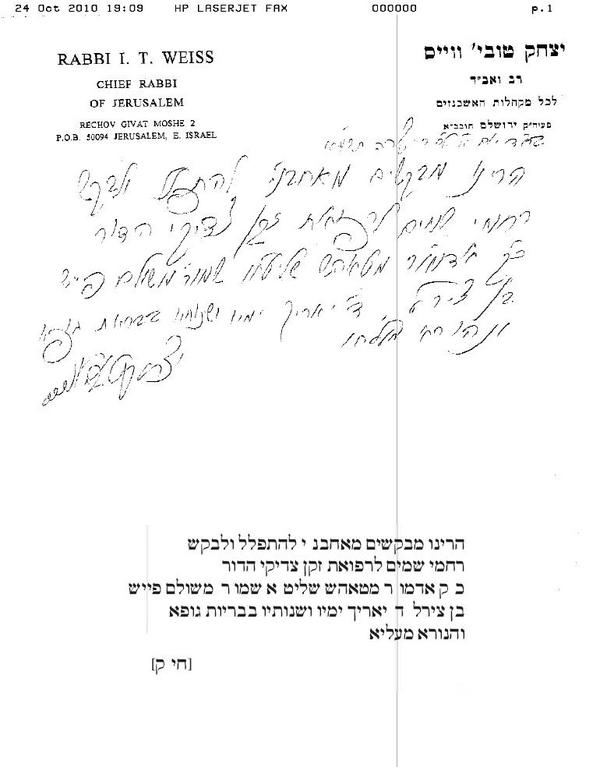 24 Oct 2010 19:09 HP LASERJET FAX 000000 p.1
RABBI I. T. WEISS
CHIEF RABBI
OF JERUSALEM
RECHOV GIVAT MOSHE 2
P.O.B. 50094 JERUSALEM, E. ISRAEL
יצחק טובי' ווייס
רב ואב"ד
לכל מקהלות האשכנזים
פעיה"ק ירושלם תובב"א
הרינו מבקשים מאחבנ"י להתפלל ולבקש
רחמי שמים לרפואת זקן צדיקי הדור
כ"ק אדמו"ר מטאהש שליט"א שמו ר' משולם פייש
בן צירל ד' יאריך ימיו ושנותיו בבריות גופא
ונהורא מעליא
הרינו מבקשים מאחבנ י להתפלל ולבקש
רחמי שמים לרפואת זקן צדיקי הדור
כ ק אדמו ר מטאהש שליט א שמו ר משולם פייש
בן צירל ד יאריך ימיו ושנותיו בבריות גופא
והנורא מעליא
[חי ק]